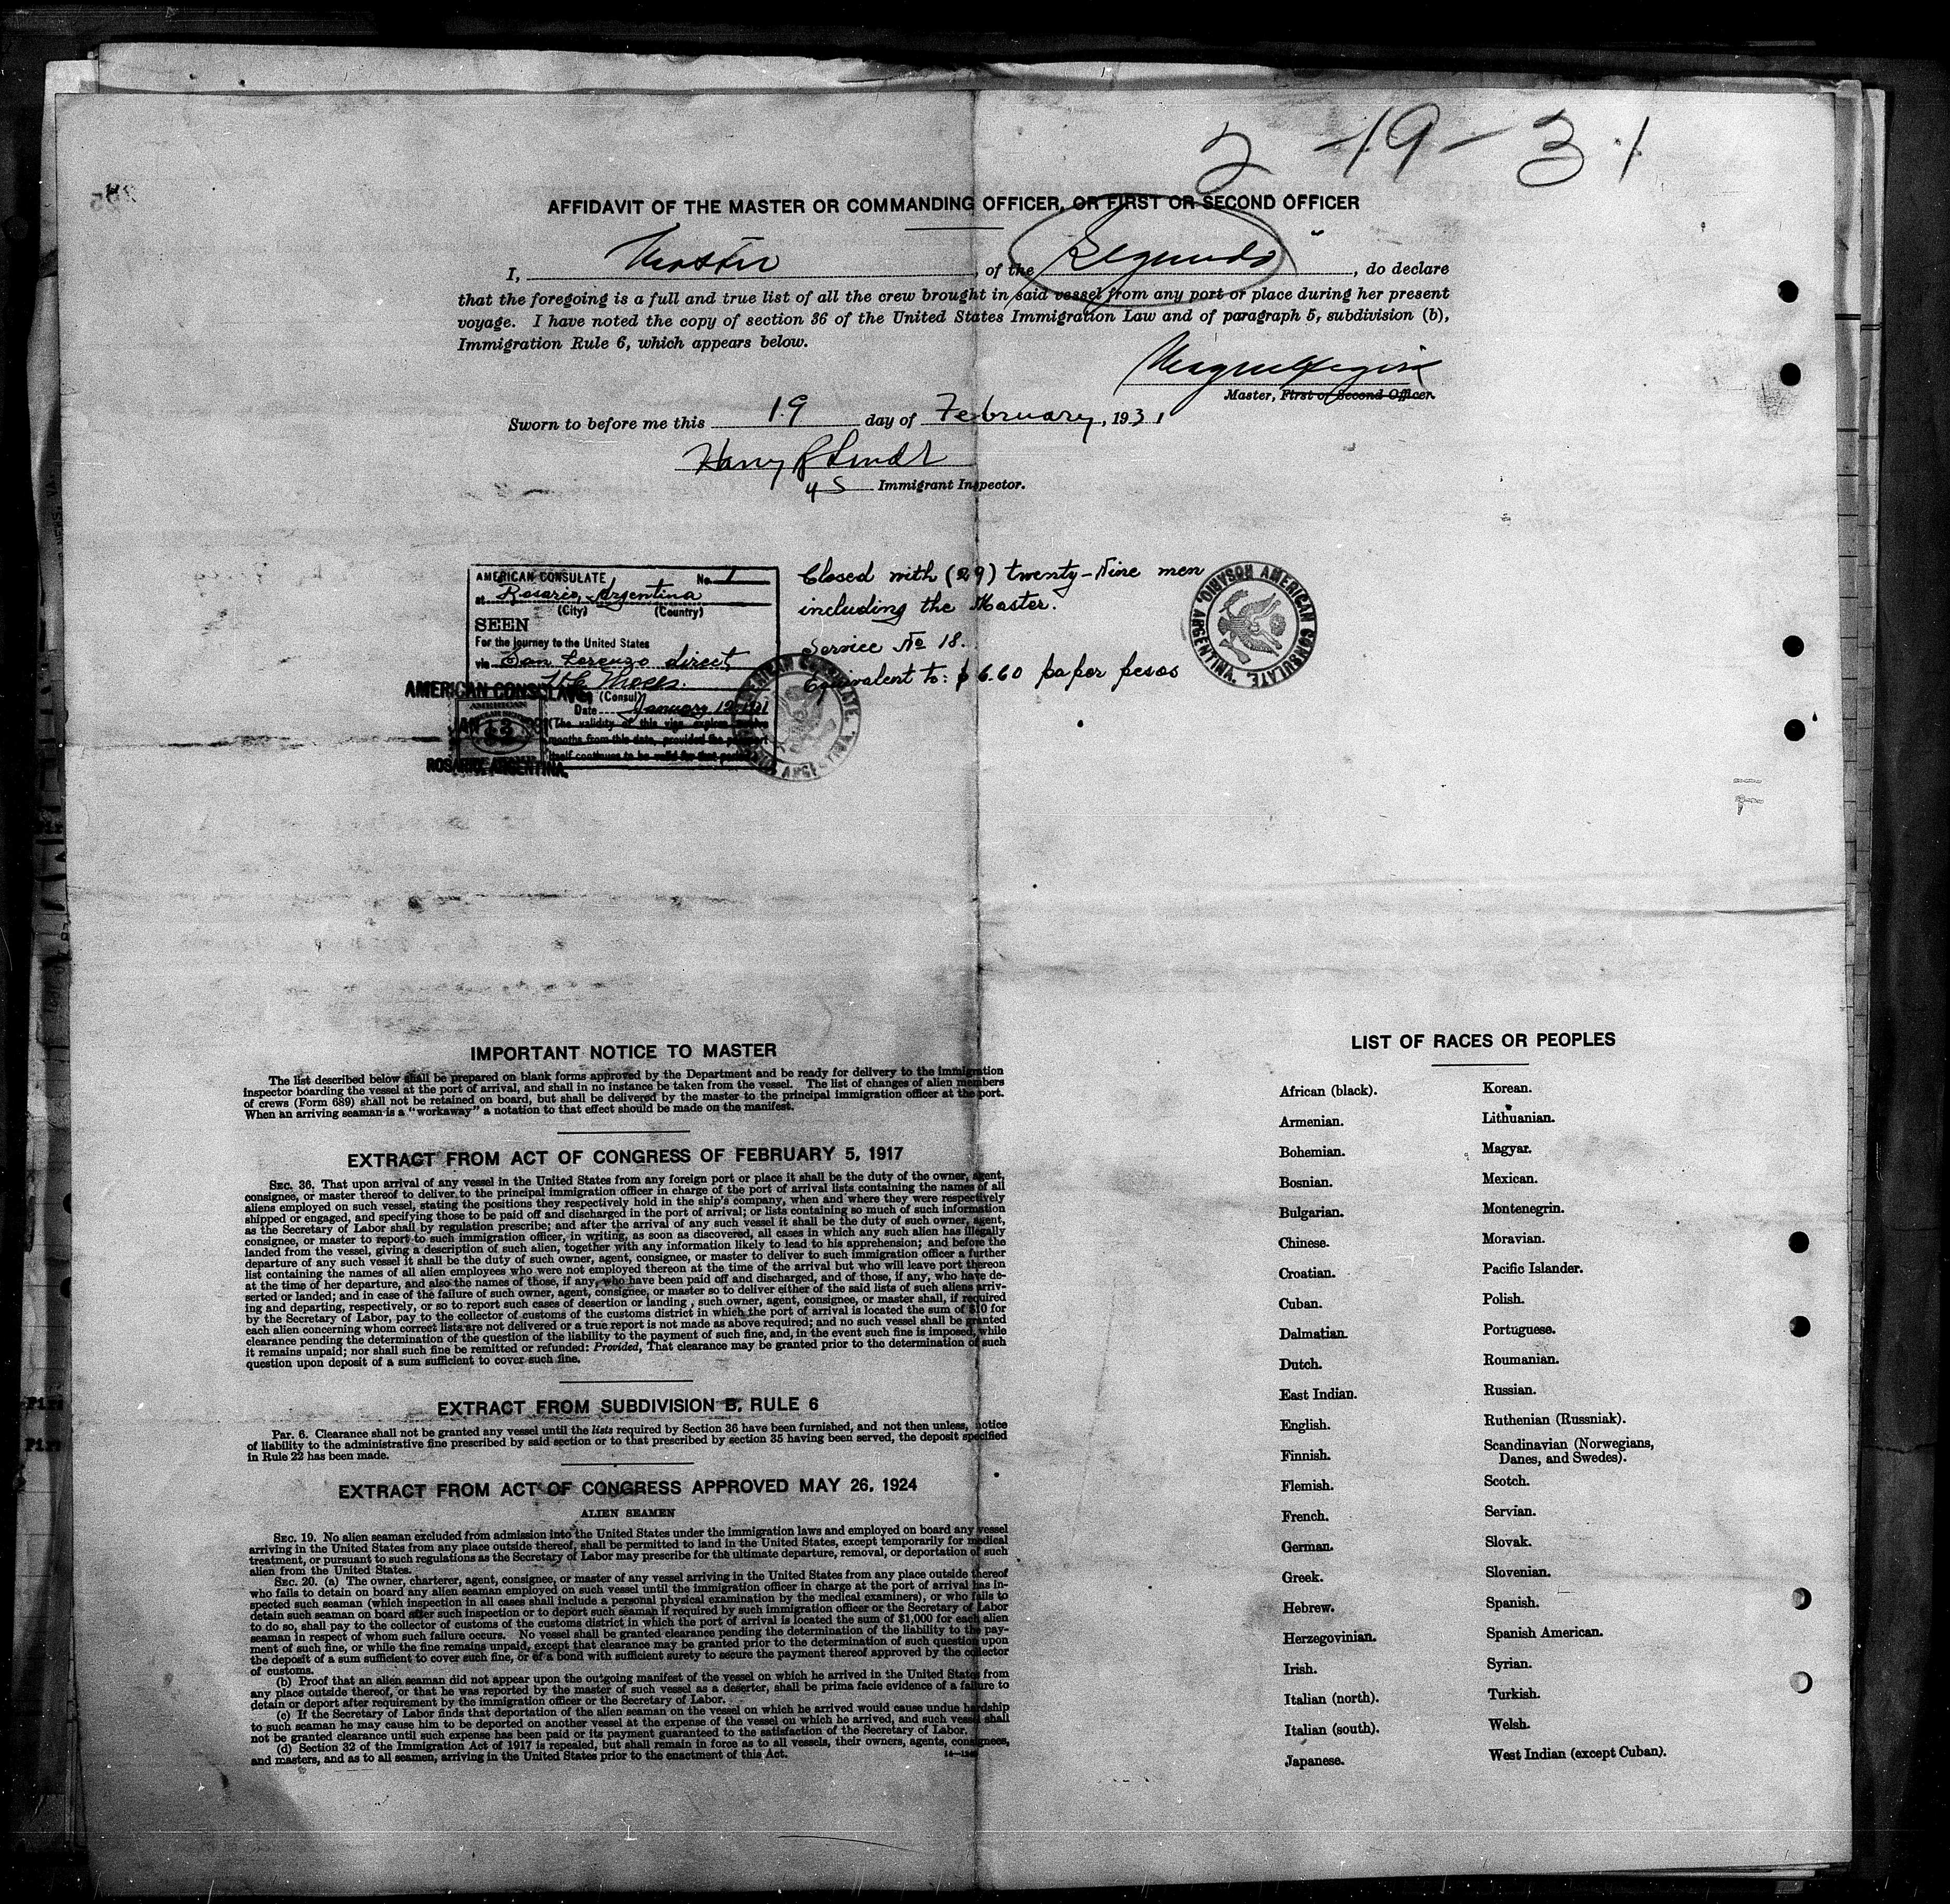 2-19-31
AFFIDAVIT OF THE MASTER OR COMMANDING OFFICER, OR FIRST OR SECOND OFFICER
I, Master, of the Segundo, do declare
that the foregoing is a full and true list of all the crew brought in said vessel from any port or place during her present
voyage. I have noted the copy of section 36 of the United States Immigration Law and of paragraph 5, subdivision (b),
Immigration Rule 6, which appears below.
Master, First or Second Officer.
Sworn to before me this 19 day of February, 1931
Harry
Immigrant Inspector.
AMERICAN CONSULATE No. 1
at Rosario, Argentina
(City) (Country)
SEEN
For the journey to the United States
via San Lorenzo direct
(Consul)
Date January 12, 1931
(The validity of this visa expires twelve
months from this date, provided the passport
itself continues to be valid for that period.)
AMERICAN CONSULATE
AMERICAN
JAN 12 1931
ROSARIO, ARGENTINA.
Closed with (29) twenty-Nine men
including the Master.
Service No 18.
Equivalent to: $ 6.60 paper pesos
AMERICAN CONSULATE. ROSARIO, ARGENTINA.
AMERICAN CONSULATE. ARGENTINA.
IMPORTANT NOTICE TO MASTER
The list described below shall be prepared on blank forms approved by the Department and be ready for delivery to the immigration
inspector boarding the vessel at the port of arrival, and shall in no instance be taken from the vessel. The list of changes of alien members
of crews (Form 689) shall not be retained on board, but shall be delivered by the master to the principal immigration officer at the port.
When an arriving seaman is a "workaway" a notation to that effect should be made on the manifest.
EXTRACT FROM ACT OF CONGRESS OF FEBRUARY 5, 1917
SEC. 36. That upon arrival of any vessel in the United States from any foreign port or place it shall be the duty of the owner, agent,
consignee, or master thereof to deliver to the principal immigration officer in charge of the port of arrival lists containing the names of all
aliens employed on such vessel, stating the positions they respectively hold in the ship's company, when and where they were respectively
shipped or engaged, and specifying those to be paid off and discharged in the port of arrival; or lists containing so much of such information
as the Secretary of Labor shall by regulation prescribe; and after the arrival of any such vessel it shall be the duty of such owner, agent,
consignee, or master to report to such immigration officer, in writing, as soon as discovered, all cases in which any such alien has illegally
landed from the vessel, giving a description of such alien, together with any information likely to lead to his apprehension; and before the
departure of any such vessel it shall be the duty of such owner, agent, consignee, or master to deliver to such immigration officer a further
list containing the names of all alien employees who were not employed thereon at the time of the arrival but who will leave port thereon
at the time of her departure, and also the names of those, if any, who have been paid off and discharged, and of those, if any, who have de-
serted or landed; and in case of the failure of such owner, agent, consignee, or master so to deliver either of the said lists of such aliens arriv-
ing and departing, respectively, or so to report such cases of desertion or landing, such owner, agent, consignee, or master shall, if required
by the Secretary of Labor, pay to the collector of customs of the customs district in which the port of arrival is located the sum of $10 for
each alien concerning whom correct lists are not delivered or a true report is not made as above required; and no such vessel shall be granted
clearance pending the determination of the question of the liability to the payment of such fine, and, in the event such fine is imposed, while
it remains unpaid; nor shall such fine be remitted or refunded: Provided, That clearance may be granted prior to the determination of such
question upon deposit of a sum sufficient to cover such fine.
EXTRACT FROM SUBDIVISION B, RULE 6
Par. 6. Clearance shall not be granted any vessel until the lists required by Section 36 have been furnished, and not then unless, notice
of liability to the administrative fine prescribed by said section or to that prescribed by section 35 having been served, the deposit specified
in Rule 22 has been made.
EXTRACT FROM ACT OF CONGRESS APPROVED MAY 26, 1924
ALIEN SEAMEN
SEC. 19. No alien seaman excluded from admission into the United States under the immigration laws and employed on board any vessel
arriving in the United States from any place outside thereof, shall be permitted to land in the United States, except temporarily for medical
treatment, or pursuant to such regulations as the Secretary of Labor may prescribe for the ultimate departure, removal, or deportation of such
alien from the United States.
SEC. 20. (a) The owner, charterer, agent, consignee, or master of any vessel arriving in the United States from any place outside thereof
who fails to detain on board any alien seaman employed on such vessel until the immigration officer in charge at the port of arrival has in-
spected such seaman (which inspection in all cases shall include a personal physical examination by the medical examiners), or who fails to
detain such seaman on board after such inspection or to deport such seaman if required by such immigration officer or the Secretary of Labor
to do so, shall pay to the collector of customs of the customs district in which the port of arrival is located the sum of $1,000 for each alien
seaman in respect of whom such failure occurs. No vessel shall be granted clearance pending the determination of the liability to the pay-
ment of such fine, or while the fine remains unpaid, except that clearance may be granted prior to the determination of such question upon
the deposit of a sum sufficient to cover such fine, or of a bond with sufficient surety to secure the payment thereof approved by the collector
of customs.
(b) Proof that an alien seaman did not appear upon the outgoing manifest of the vessel on which he arrived in the United States from
any place outside thereof, or that he was reported by the master of such vessel as a deserter, shall be prima facie evidence of a failure to
detain or deport after requirement by the immigration officer or the Secretary of Labor.
(c) If the Secretary of Labor finds that deportation of the alien seaman on the vessel on which he arrived would cause undue hardship
to such seaman he may cause him to be deported on another vessel at the expense of the vessel on which he arrived, and such vessel shall
not be granted clearance until such expense has been paid or its payment guaranteed to the satisfaction of the Secretary of Labor.
(d) Section 32 of the Immigration Act of 1917 is repealed, but shall remain in force as to all vessels, their owners, agents, consignees,
and masters, and as to all seamen, arriving in the United States prior to the enactment of this Act.
LIST OF RACES OR PEOPLES
African (black).
Armenian.
Bohemian.
Bosnian.
Bulgarian.
Chinese.
Croatian.
Cuban.
Dalmatian.
Dutch.
East Indian.
English.
Finnish.
Flemish.
French.
German.
Greek.
Hebrew.
Herzegovinian.
Irish.
Italian (north).
Italian (south).
Japanese.
Korean.
Lithuanian.
Magyar.
Mexican.
Montenegrin.
Moravian.
Pacific Islander.
Polish.
Portuguese.
Roumanian.
Russian.
Ruthenian (Russniak).
Scandinavian (Norwegians,
Danes, and Swedes).
Scotch.
Servian.
Slovak.
Slovenian.
Spanish.
Spanish American.
Syrian.
Turkish.
Welsh.
West Indian (except Cuban).